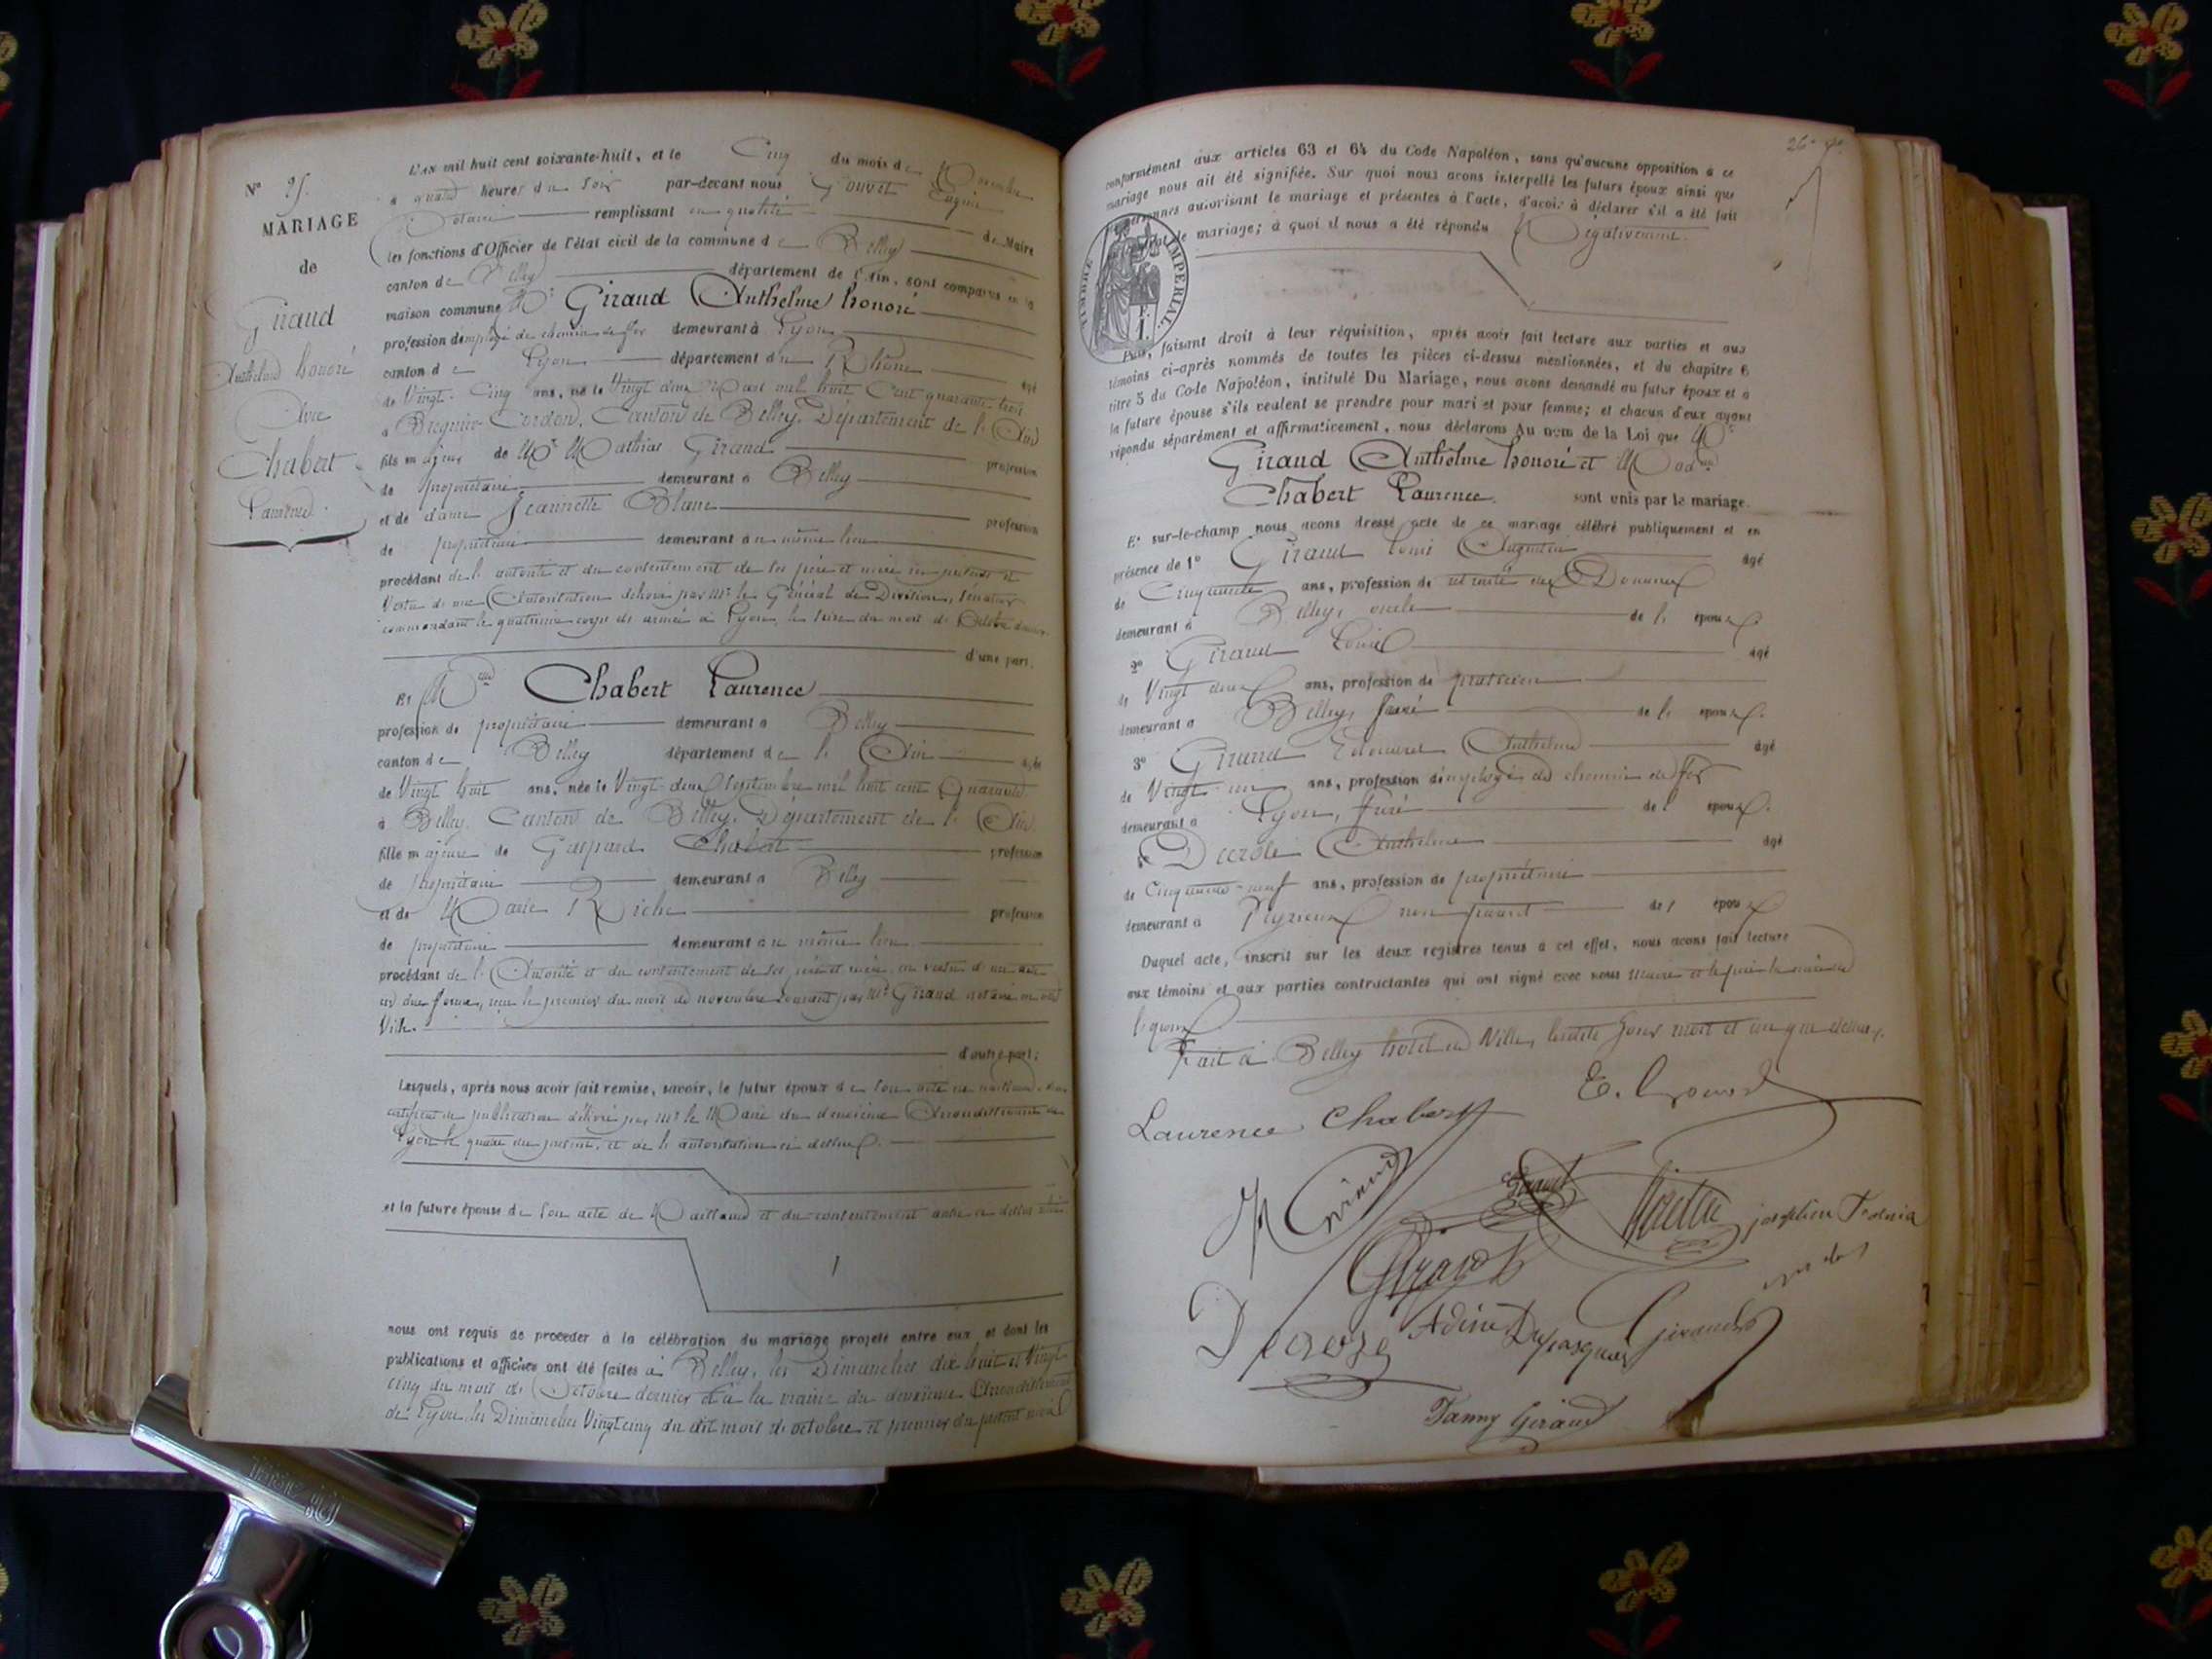 N° 25.
MARIAGE
de
Giraud
Anthelme honoré
Avec
Chabert
Laurence.
L'AN mil huit cent soixante-huit, et le Cinq du mois de Novembre
à quatre heures du soir par-devant nous Gouvet Eugène
Notaire remplissant en qualité de Maire
les fonctions d'Officier de l'état civil de la commune de Belley
canton de Belley département de l'Ain, sont comparus en la
maison commune Mr Giraud Anthelme honoré
profession d'employé de chemin de fer demeurant à Lyon
canton de Lyon département du Rhône âgé
de Vingt-Cinq ans, né le Vingt deux Mars mil huit Cent quarante-trois
à Brégnier-Cordon, Canton de Belley, Département de l'Ain
fils majeur de Mr Mathias Giraud profession
de propriétaire demeurant à Belley
et de dame Jeannette Blanc profession
de propriétaire demeurant au même lieu
procédant de l'autorité et du consentement de ses père et mère ici présents et
Vertu de une Autorisation délivrée par Mr le Général de Division, Sénateur
commandant le quatrième corps de armée à Lyon, le treize du mois de Octobre dernier
d'une part.
Et Mlle Chabert Laurence
profession de propriétaire demeurant à Belley
canton de Belley département de l'Ain âgée
de Vingt huit ans, née le Vingt-deux Septembre mil huit cent Quarante
à Belley, Canton de Belley, Département de l'Ain
fille majeure de Gaspard Chabert profession
de propriétaire demeurant à Belley
et de Marie Riche profession
de propriétaire demeurant au même lieu
procédant de l'Autorité et du consentement de ses père et mère, en vertu d'un acte
en due forme, reçu le premier du mois de novembre courant par Mr Giraud notaire en cette
Ville.
d'autre part;
Lesquels, après nous avoir fait remise, savoir, le futur époux de son acte de naissance, du
certificat de publication délivré par Mr le Maire du deuxième Arrondissement de
Lyon le quatre du présent, et de l'autorisation ci dessus.
et la future épouse de son acte de Naissance et du consentement aussi ci dessus
nous ont requis de procéder à la célébration du mariage projeté entre eux, et dont les
publications et affiches ont été faites à Belley, les Dimanches dix huit et Vingt
cinq du mois de Octobre dernier et à la mairie du deuxième Arrondissement
de Lyon les Dimanches Vingt cinq du dit mois de octobre et premier du présent mois
26
conformément aux articles 63 et 64 du Code Napoléon, sans qu'aucune opposition à ce
mariage nous ait été signifiée. Sur quoi nous avons interpellé les futurs époux ainsi que
personnes autorisant le mariage et présentes à l'acte, d'avoir à déclarer s'il a été fait
de mariage; à quoi il nous a été répondu Négativement.
TIMBRE IMPERIAL.
F. 1.
Puis, faisant droit à leur réquisition, après avoir fait lecture aux parties et aux
témoins ci-après nommés de toutes les pièces ci-dessus mentionnées, et du chapitre 6
titre 5 du Code Napoléon, intitulé Du Mariage, nous avons demandé au futur époux et à
la future épouse s'ils veulent se prendre pour mari et pour femme; et chacun d'eux ayant
répondu séparément et affirmativement, nous déclarons Au nom de la Loi que Mr
Giraud Anthelme honoré et Madlle
Chabert Laurence. sont unis par le mariage.
Et sur-le-champ nous avons dressé acte de ce mariage célébré publiquement et en
présence de 1° Giraud Louis Augustin âgé
de Cinquante ans, profession de retraité des Douanes
demeurant à Belley, oncle de l'époux.
2° Giraud Louis âgé
de Vingt deux ans, profession de praticien
demeurant à Belley, frère de l'époux.
3° Giraud Edouard Anthelme âgé
de Vingt-un ans, profession d'employé de chemin de fer
demeurant à Lyon, frère de l'époux.
Decroze Anthelme âgé
de Cinquante-neuf ans, profession de propriétaire
demeurant à Peyrieux non parent de l'époux
Duquel acte, inscrit sur les deux registres tenus à cet effet, nous avons fait lecture
aux témoins et aux parties contractantes qui ont signé avec nous Maire et le père la mère de
l'époux
Fait à Belley hotel de Ville, lesdits Jour mois et an que dessus.
E. Gouvet
Laurence Chabert
Giraud
Giraud
Giraud
joséphine
Decroze
Adine Dupasquier
Giraud
Fanny Giraud